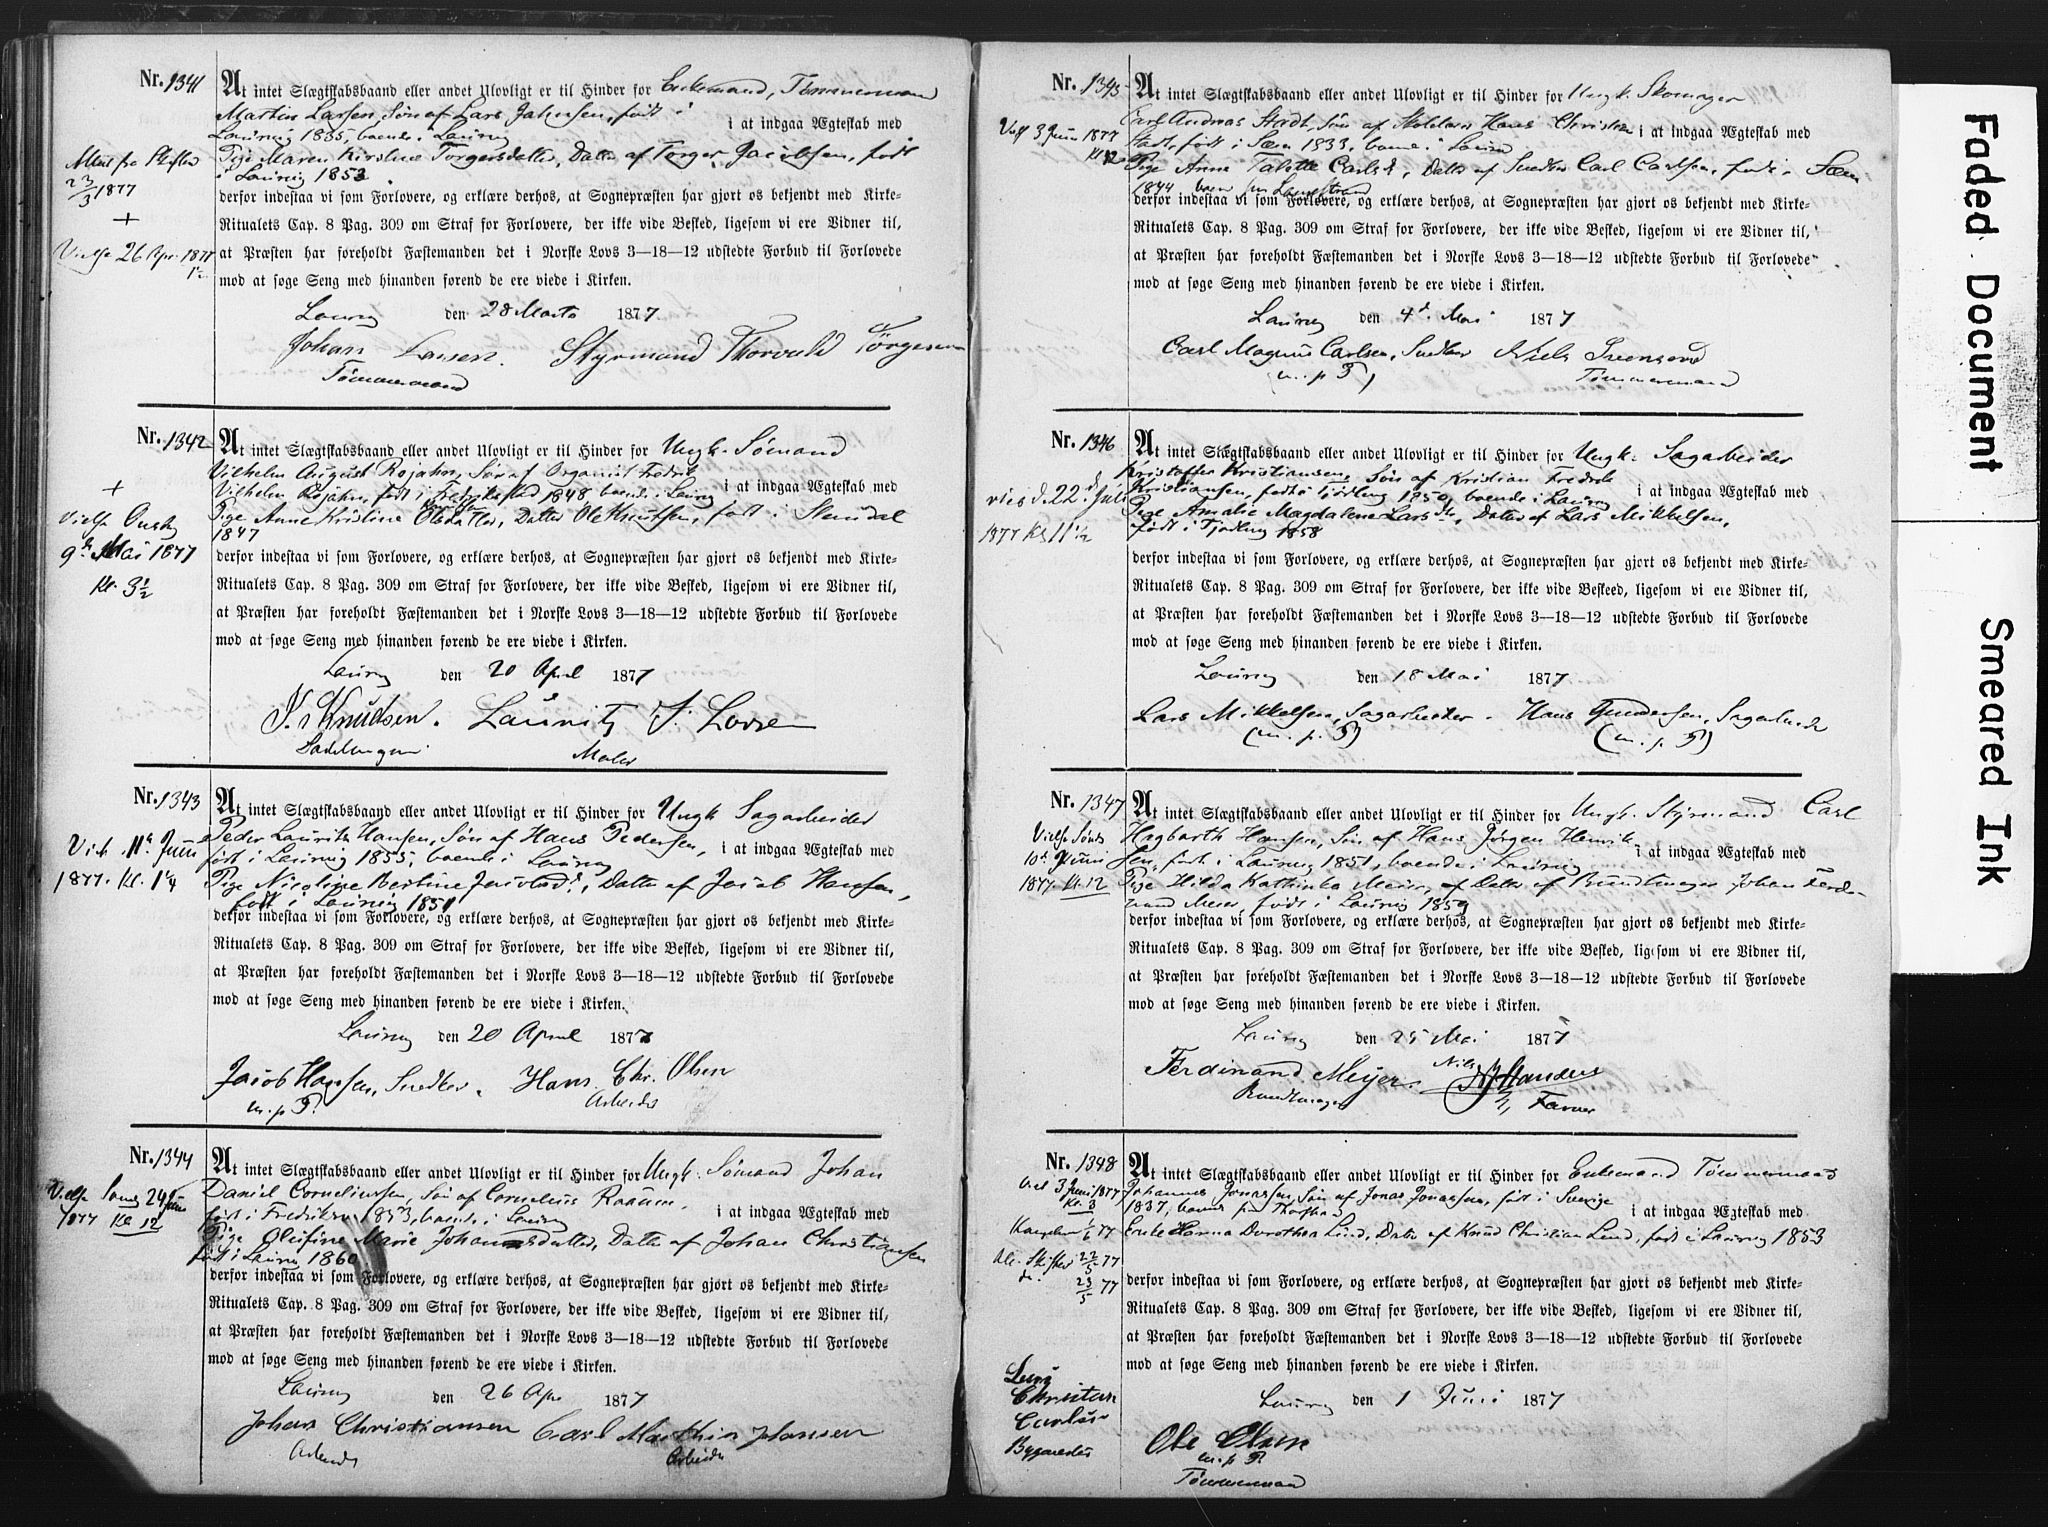 Nr. 1341
At intet Slægtskabsbaand eller andet Ulovligt er til Hinder for Enkemand, Tømmermand
Martin Larsen, Søn af Lars Jahnsen, født i
Laurvig 1835, boende i Laurvig i at indgaa Ægteskab med
Pige Maren Kirstine Torgersdatter, Datter af Torger Jacobsen, født
i Laurvig 1853
derfor indestaa vi som Forlovere, og erklære derhos, at Sognepræsten har gjort os bekjendt med Kirke-
Ritualets Cap. 8 Pag. 309 om Straf for Forlovere, der ikke vide Besked, ligesom vi ere Vidner til,
at Præsten har foreholdt Fæstemanden det i Norske Lovs 3—18—12 udstedte Forbud til Forlovede
mod at søge Seng med hinanden førend de ere viede i Kirken.
Laurvig den 28 Marts 1877
Johan Larsen. Styrmand Thorvald Törgersen
Tømmermand
23/3 1877
+
Vielse 26 Apr. 1877
1½
Nr. 1342
At intet Slægtskabsbaand eller andet Ulovligt er til Hinder for Ungk. Sømand
Vilhelm August Rojahn, Søn af Organist Fredrik
Vilhelm Rojahn, født i Fredrikstad 1848 boende i Laurvig i at indgaa Ægteskab med
Pige Anne Kristine Olsdatter, Datter Ole Knutsen, født i
1847
derfor indestaa vi som Forlovere, og erklære derhos, at Sognepræsten har gjort os bekjendt med Kirke-
Ritualets Cap. 8 Pag. 309 om Straf for Forlovere, der ikke vide Besked, ligesom vi ere Vidner til,
at Præsten har foreholdt Fæstemanden det i Norske Lovs 3—18—12 udstedte Forbud til Forlovede
mod at søge Seng med hinanden førend de ere viede i Kirken.
Laurvig den 20 April 1877
Knudsen. Lauritz
Maler
+
Vielse Onsdag
9de Mai 1877
Kl. 3½
Nr. 1343
At intet Slægtskabsbaand eller andet Ulovligt er til Hinder for Ungk Sagarbeider
Peder Lauritz Hansen, Søn af Hans Pedersen,
født i Laurvig 1855, boende i Laurvig i at indgaa Ægteskab med
Pige Nicoline Bertine Jacobsd., Datter af Jacob Hansen,
født i Laurvig 1851
derfor indestaa vi som Forlovere, og erklære derhos, at Sognepræsten har gjort os bekjendt med Kirke-
Ritualets Cap. 8 Pag. 309 om Straf for Forlovere, der ikke vide Besked, ligesom vi ere Vidner til,
at Præsten har foreholdt Fæstemanden det i Norske Lovs 3—18—12 udstedte Forbud til Forlovede
mod at søge Seng med hinanden førend de ere viede i Kirken.
Laurvig den 20 April 1877
Jacob Hansen, Snedker. Hans Chr. Olsen
m. p P. Arbeider
Viet 11te Juni
1877. Kl. 1¼
Nr. 1344
At intet Slægtskabsbaand eller andet Ulovligt er til Hinder for Ungk. Sømand Johan
Daniel Corneliussen, Søn af Cornelius
født i 1853, boende i Laurvig i at indgaa Ægteskab med
Pige Olefine Marie Johannsdatter, Datter af Johan Christiansen
født i Laurvig 1860
derfor indestaa vi som Forlovere, og erklære derhos, at Sognepræsten har gjort os bekjendt med Kirke-
Ritualets Cap. 8 Pag. 309 om Straf for Forlovere, der ikke vide Besked, ligesom vi ere Vidner til,
at Præsten har foreholdt Fæstemanden det i Norske Lovs 3—18—12 udstedte Forbud til Forlovede
mod at søge Seng med hinanden førend de ere viede i Kirken.
Laurvig den 26 Apr 1877
Johan Christiansen Carl Marthin Johansen
Arbeider Arbeider
Vielse Sønd 24 Juni
1877 Kl. 12
Nr. 1345
At intet Slægtskabsbaand eller andet Ulovligt er til Hinder for Ungk. Skomager
Carl Andreas Stadt, Søn af Hans Christian i at indgaa Ægteskab med
Stadt, født i 1833, boende i Laurvig
Pige Anne Carlsd., Datter af Snedker Carl Carlsen, født i
1844 boende paa Langestrand
derfor indestaa vi som Forlovere, og erklære derhos, at Sognepræsten har gjort os bekjendt med Kirke-
Ritualets Cap. 8 Pag. 309 om Straf for Forlovere, der ikke vide Besked, ligesom vi ere Vidner til,
at Præsten har foreholdt Fæstemanden det i Norske Lovs 3—18—12 udstedte Forbud til Forlovede
mod at søge Seng med hinanden førend de ere viede i Kirken.
Laurvig den 4de Mai 1877
Carl Magnus Carlsen, Snedker Niels
(m. p P) Tømmermand
3 Juni 1877
Nr. 1346
At intet Slægtskabsbaand eller andet Ulovligt er til Hinder for Ungk. Sagarbeider
Kristoffer Kristiansen, Søn af Kristian Fredrik
Kristiansen, født i Tjødling 1850, boende i Laurvig i at indgaa Ægteskab med
Pige Amalie Magdalene Larsdtr, Datter af Lars Mikkelsen,
født i Tjødling 1858
derfor indestaa vi som Forlovere, og erklære derhos, at Sognepræsten har gjort os bekjendt med Kirke-
Ritualets Cap. 8 Pag. 309 om Straf for Forlovere, der ikke vide Beskeed, ligesom vi ere Vidner til,
at Præsten har foreholdt Fæstemanden det i Norske Lovs 3—18—12 udstedte Forbud til Forlovede
mod at søge Seng med hinanden førend de ere viede i Kirken.
Laurvig den 18 Mai 1877
Lars Mikkelsen, Sagarbeider. Hans Gundersen, Sagarbeider
(m. p. P) (m. p. P)
vies d. 22. d Juli
1877 Kl 11½
Nr. 1347
At intet Slægtskabsbaand eller andet Ulovligt er til Hinder for Ungk. Styrmand Carl
Hagbarth Hansen, Søn af Hans Jørgen Henrik-
sen, født i Laurvig 1851, boende i Laurvig i at indgaa Ægteskab med
Pige Hilda Kathinka Meier, Datter af Bundtmager Johan Ferdi-
nand Meier, født i Laurvig 1859
derfor indestaa vi som Forlovere, og erklære derhos, at Sognepræsten har gjort os bekjendt med Kirke-
Ritualets Cap. 8 Pag. 309 om Straf for Forlovere, der ikke vide Besked, ligesom vi ere Vidner til,
at Præsten har foreholdt Fæstemanden det i Norske Lovs 3—18—12 udstedte Forbud til Forlovede
mod at søge Seng med hinanden førend de ere viede i Kirken.
Laurvig den 25 Mai 1877
Ferdinand Meyer. Nils
Bundtmager Farver
Vielse Sønd.
10de Juni
1877 Kl. 12
Nr. 1348
At intet Slægtskabsbaand eller andet Ulovligt er til Hinder for Enkemand Tømmermand
Johannes Jonassen, Søn af Jonas Jonassen, født i Sverige
1837, boende paa Thorstrand i at indgaa Ægteskab med
Enke Hanna Dorothea Lind, Datter af Knud Christian Lind, født i Laurvig 1853
derfor indestaa vi som Forlovere, og erklære derhos, at Sognepræsten har gjort os bekjendt med Kirke-
Ritualets Cap. 8 Pag. 309 om Straf for Forlovere, der ikke vide Besked, ligesom vi ere Vidner til,
at Præsten har foreholdt Fæstemanden det i Norske Lovs 3—18—12 udstedte Forbud til Forlovede
mod at søge Seng med hinanden førend de ere viede i Kirken.
Laurvig den 1 Juni 1877
Ole Olsen
m. p P.
Tømmermand
Viet 3 Juni 1877
Kl. 3
1/6 77
22/5 77
do. 23/5 77
Christian
Carlsen
Faded Document
Smeared Ink